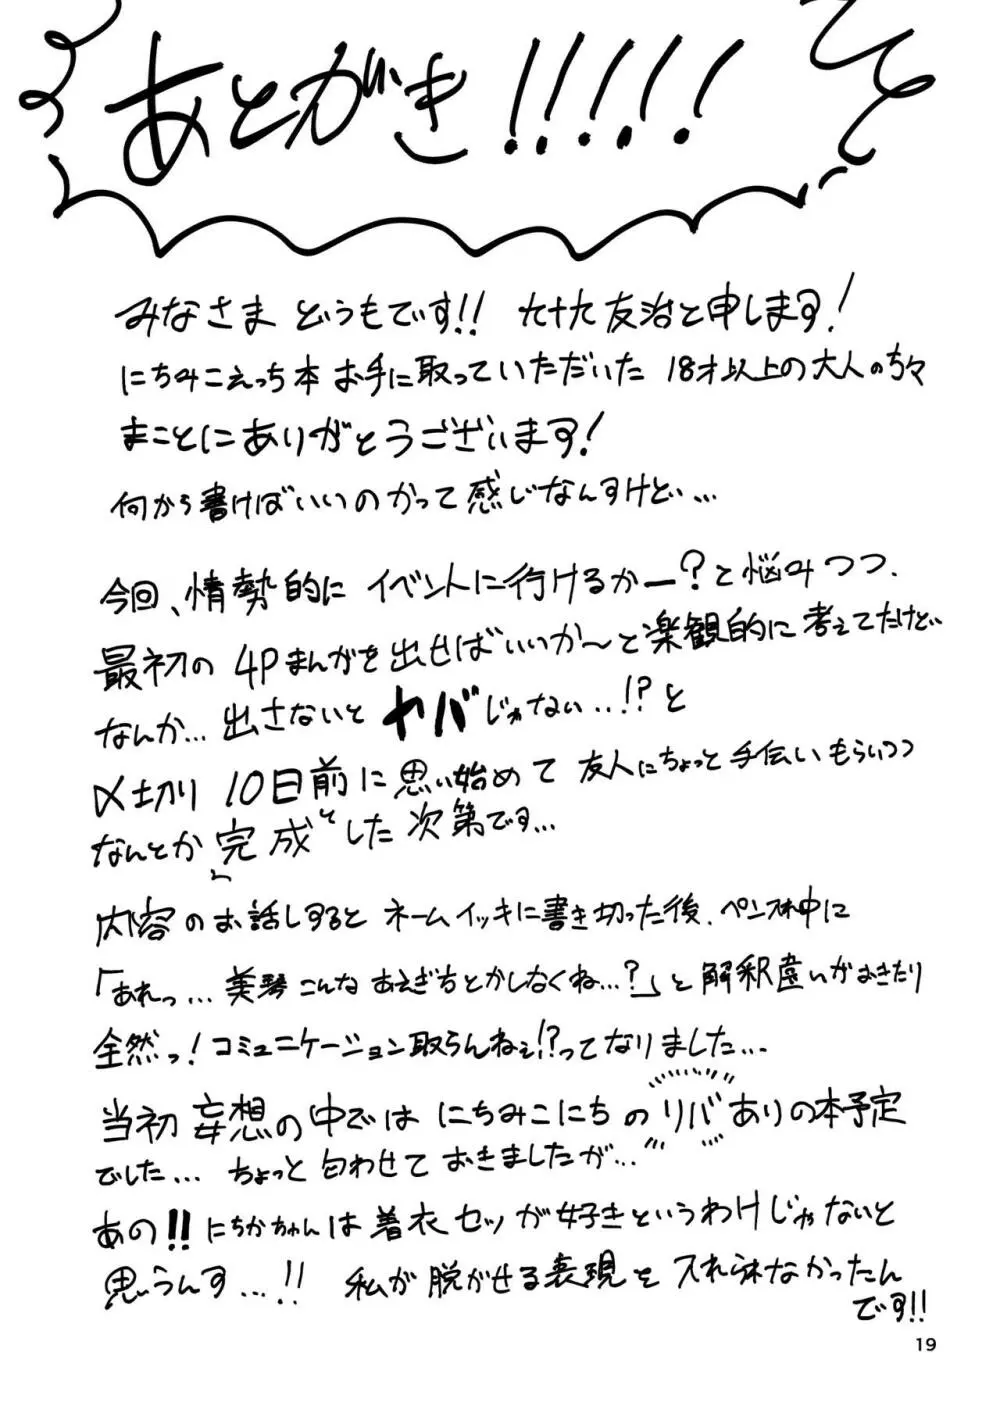 あとがき!!!!!
みなさま どうもです!! 九十九友治と申します!
にちみこえっち本 お手に取っていただいた 18才以上の大人の方々
まことにありがとうございます!
何から書けばいいのかって感じなんすけど…
今回、情勢的に イベントに行けるかー?と悩みつつ、
最初の 4Pまんがを出せばいいか〜と楽観的に考えてたけど…
なんか… 出さないと ヤバじゃない…!?と
〆切り 10日前に思い始めて 友人にちょっと手伝いもらいつつ
なんとか 完成とした次第です…
内容のお話しすると ネームイッキに書き切った後、ペン入れ中に
「あれっ… 美琴こんな あえぎ方とかしなくね…?」と 解釈違いがおきたり
全然っ!コミュニケーション取らんねぇ!?ってなりました…
当初 妄想の中では にちみこにちの リバありの本予定
でした… ちょっと匂わせておきましたが…
あの!! にちかちゃんは 着衣セッが好きというわけじゃないと
思うんす…!! 私が 脱がせる表現を 入れられなかったん
です!!
19